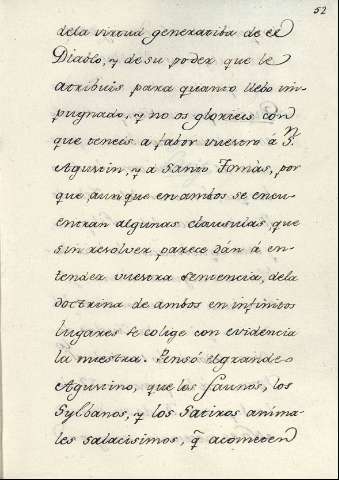 52
dela virtud generatiba de el
Diablo, y de su poder que le
atribuis para quanto llebo im-
pugnado, y no os glorieis con
que teneis a fabor vuestro á Sn
Agustin, y á Santo Tomàs, por
que, aunque en ambos se encu-
entran algunas clausulas, que
sin resolver parece dán á en-
tender vuestra sentencia, dela
doctrina de ambos en infinitos
lugares se colige con evidencia
la nuestra. Pensó el grande
Agustino, que los Faunos, los
Sylbanos, y los Satiros anima-
les salacisimos, q̃ acometen